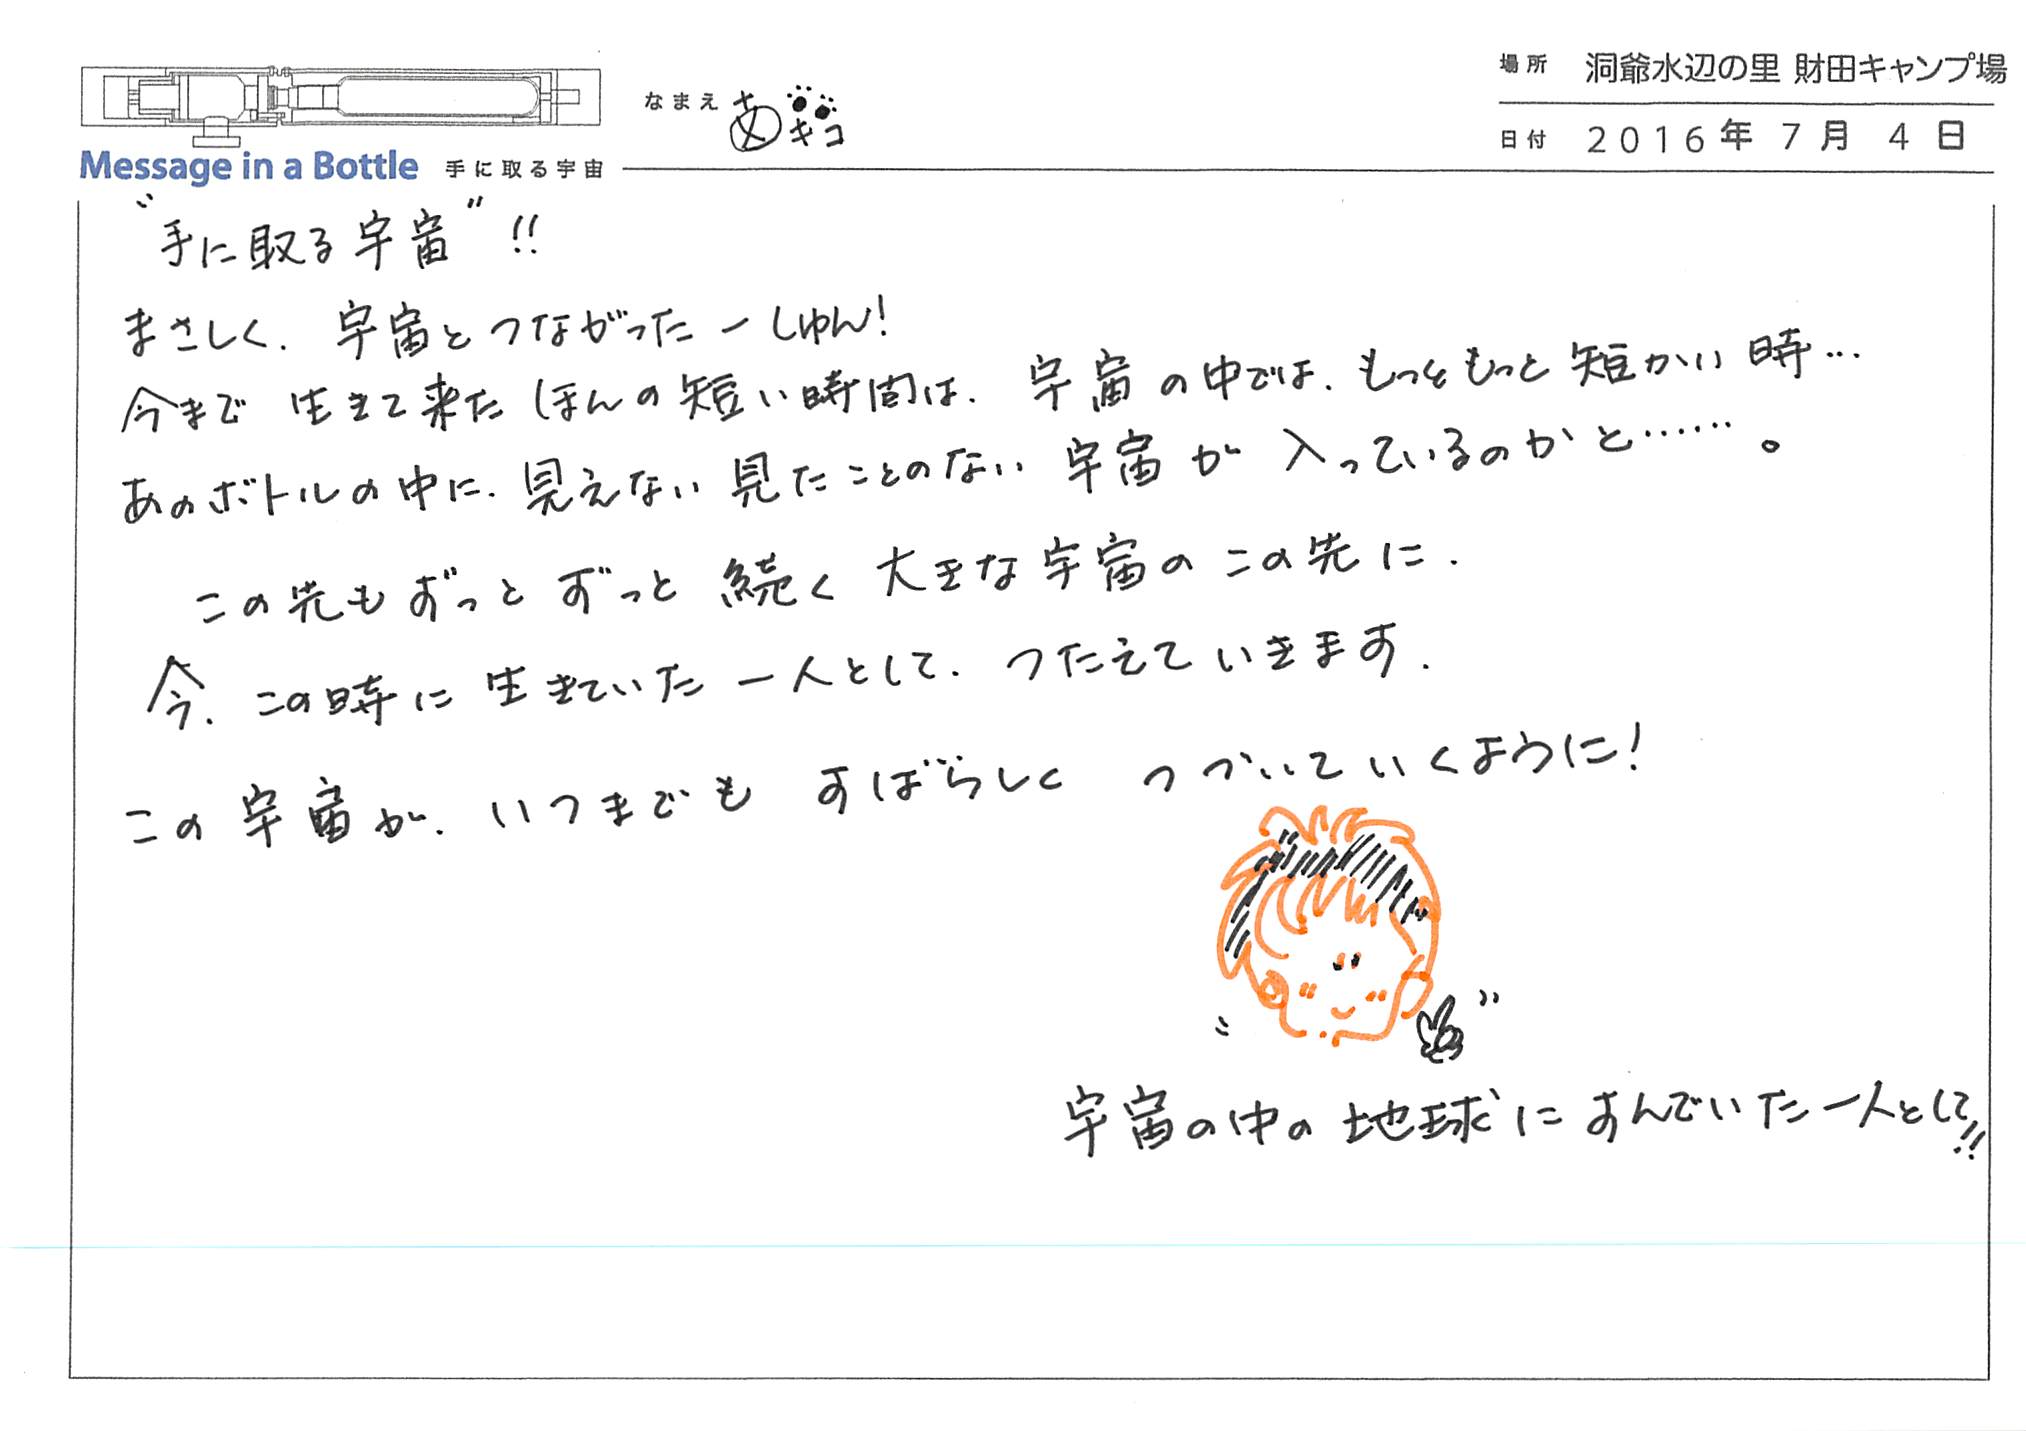 場所 洞爺水辺の里 財田キャンプ場
なまえ あキコ
日付 2016年 7月 4日
Message in a Bottle 手に取る宇宙
"手に取る宇宙"!!
まさしく、宇宙とつながった一しゅん!
今まで 生きて来た ほんの短い時間は、宇宙の中では、もっともっと 短かい 時…
あのボトルの中に、見えない 見たことのない 宇宙が 入っているのかと……。
この先も ずっと ずっと 続く 大きな宇宙の この先に、
今、この時に 生きていた 一人として、つたえていきます、
この 宇宙が、いつまでも すばらしく つづいていくように!
宇宙の中の 地球に すんでいた 一人として!!